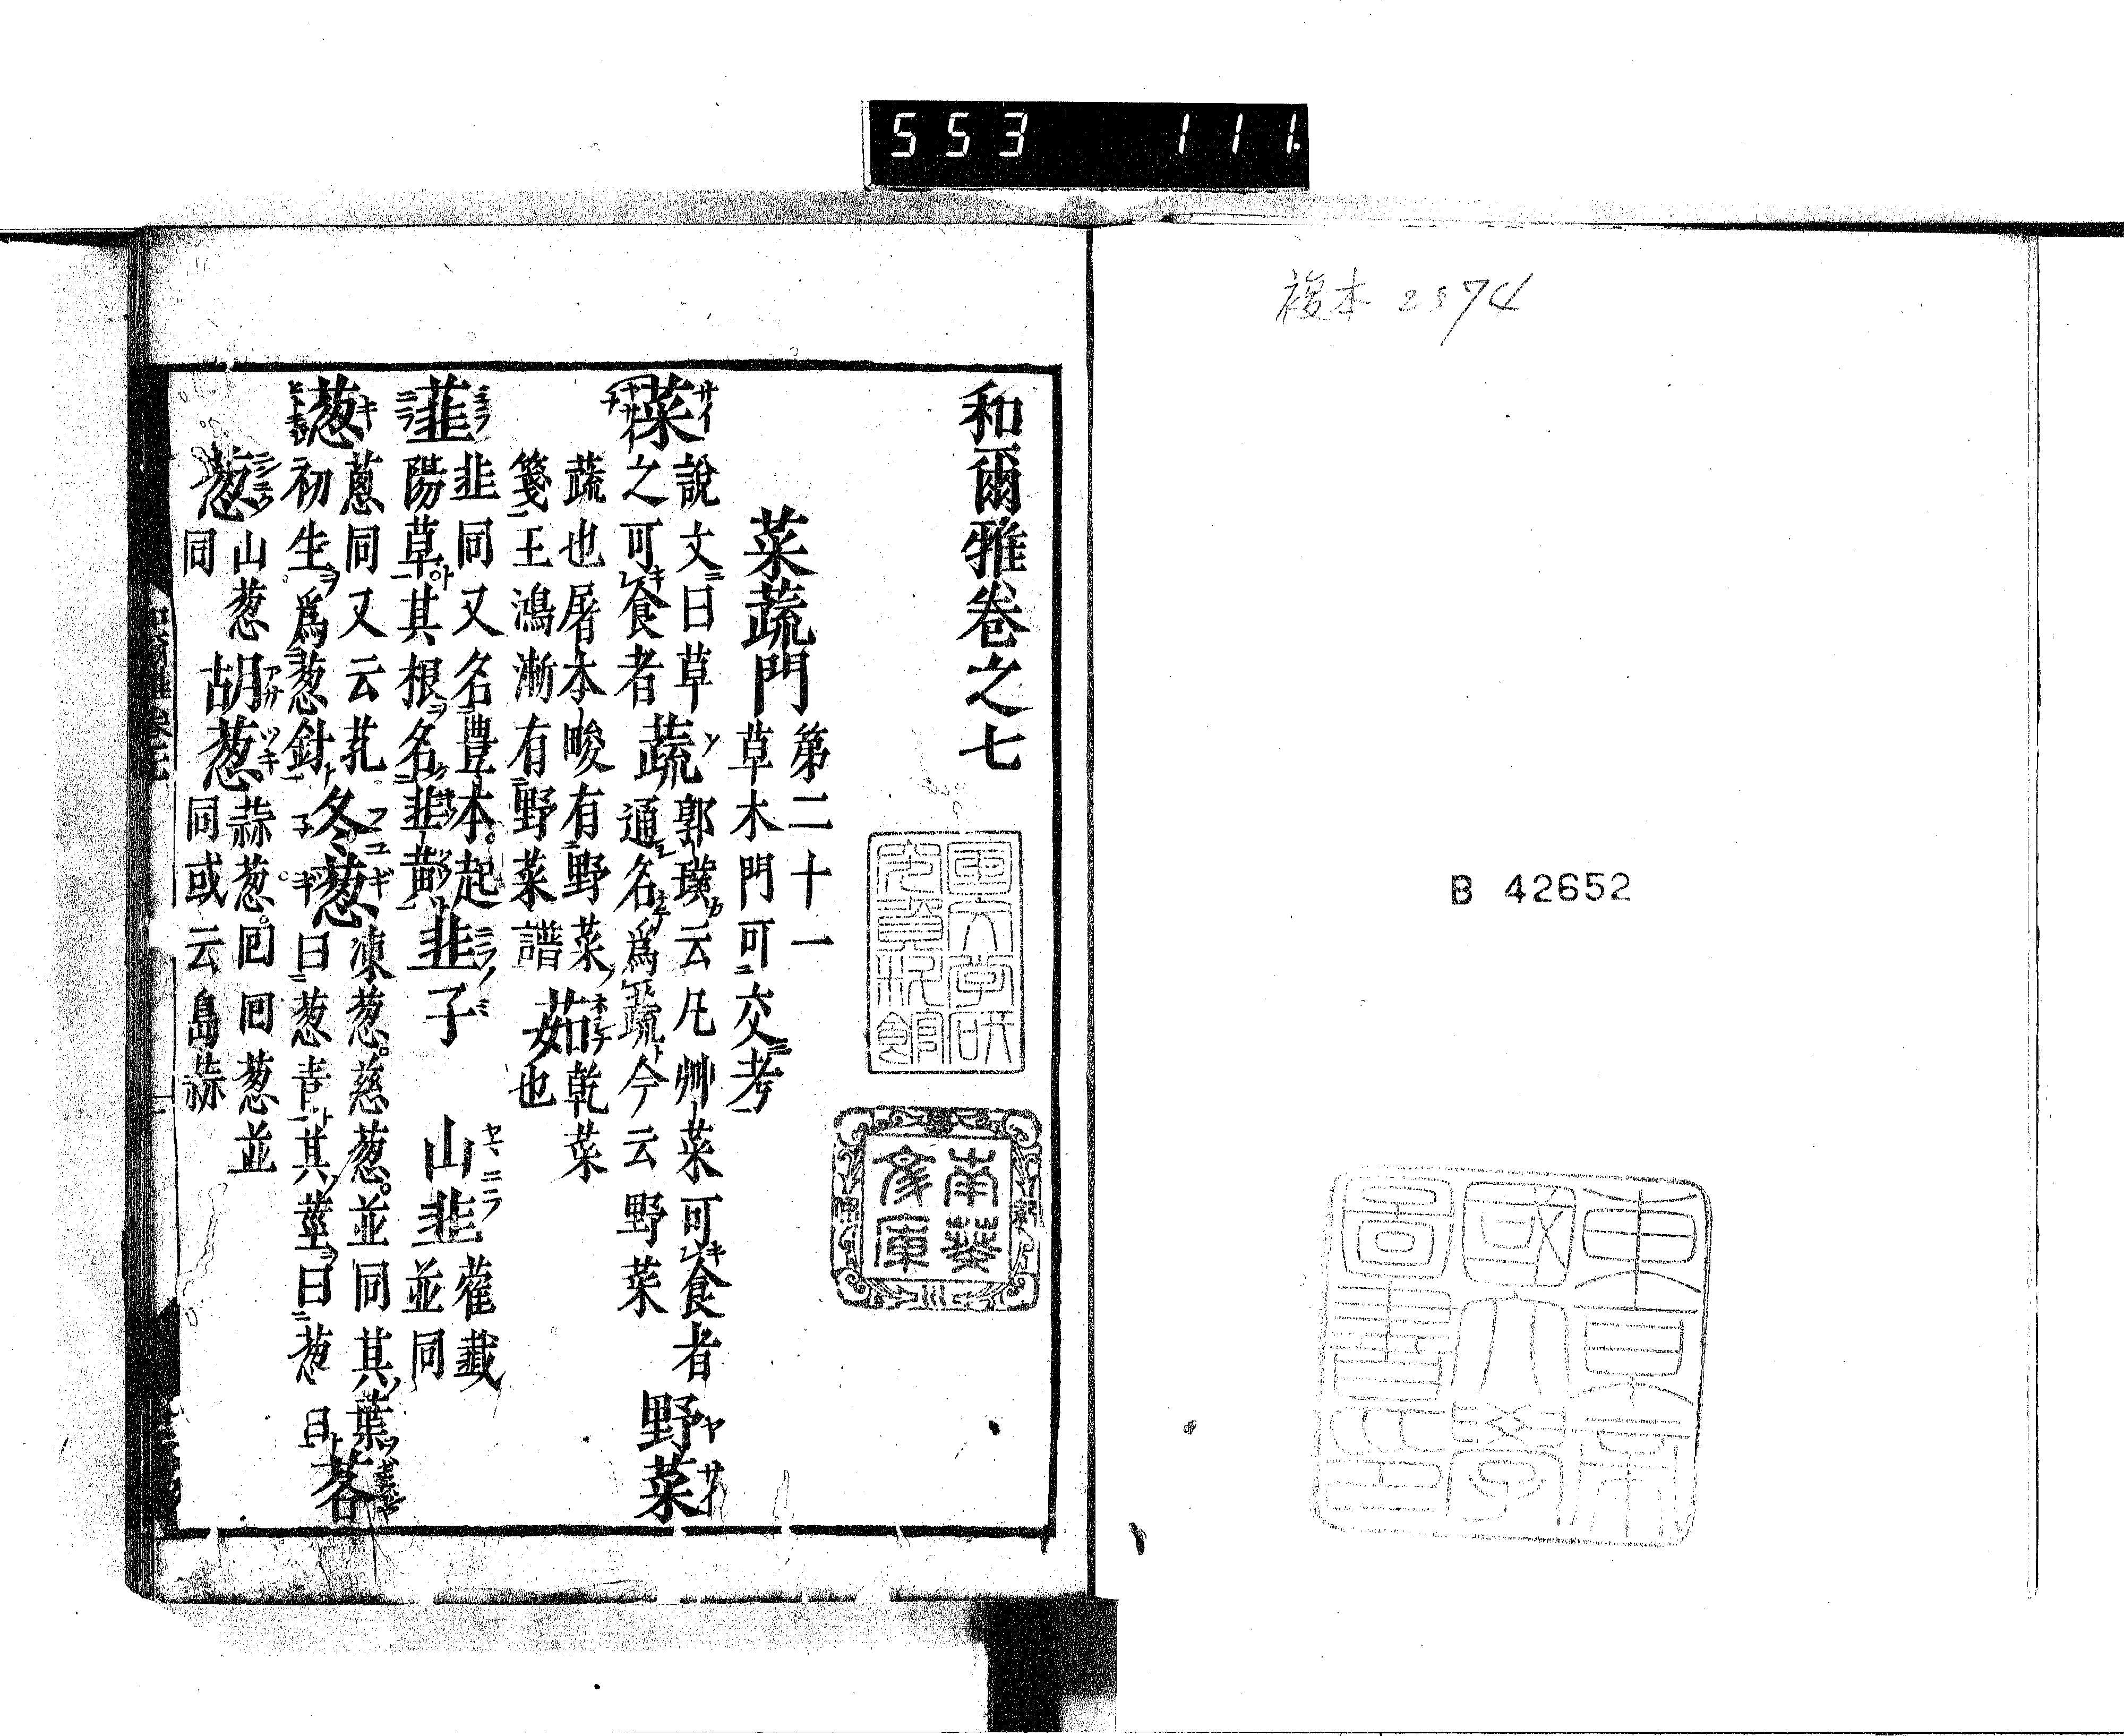 553 111
複本 2574
B 42652
東京帝
國大學
圖書印
和爾雅卷之七
南葵
文庫
菜蔬門 第二十一
草木門可交考
菜 說文曰草
之可食者
蔬 郭璞云凡艸菜可食者
通名爲蔬今云野菜
野菜
蔬也屠本畯有野菜
箋王鴻漸有野菜譜
茹 乾菜
也
韮 韭同又名豊本起
陽草其根名韭黃
韭子
山韭 藿韱
並同
葱 蔥同又云芤
初生爲葱針
冬葱 凍葱慈葱並同其葉
曰葱青其莖曰葱白
茖
葱 山葱
同
胡葱 蒜葱回回葱並
同或云島蒜